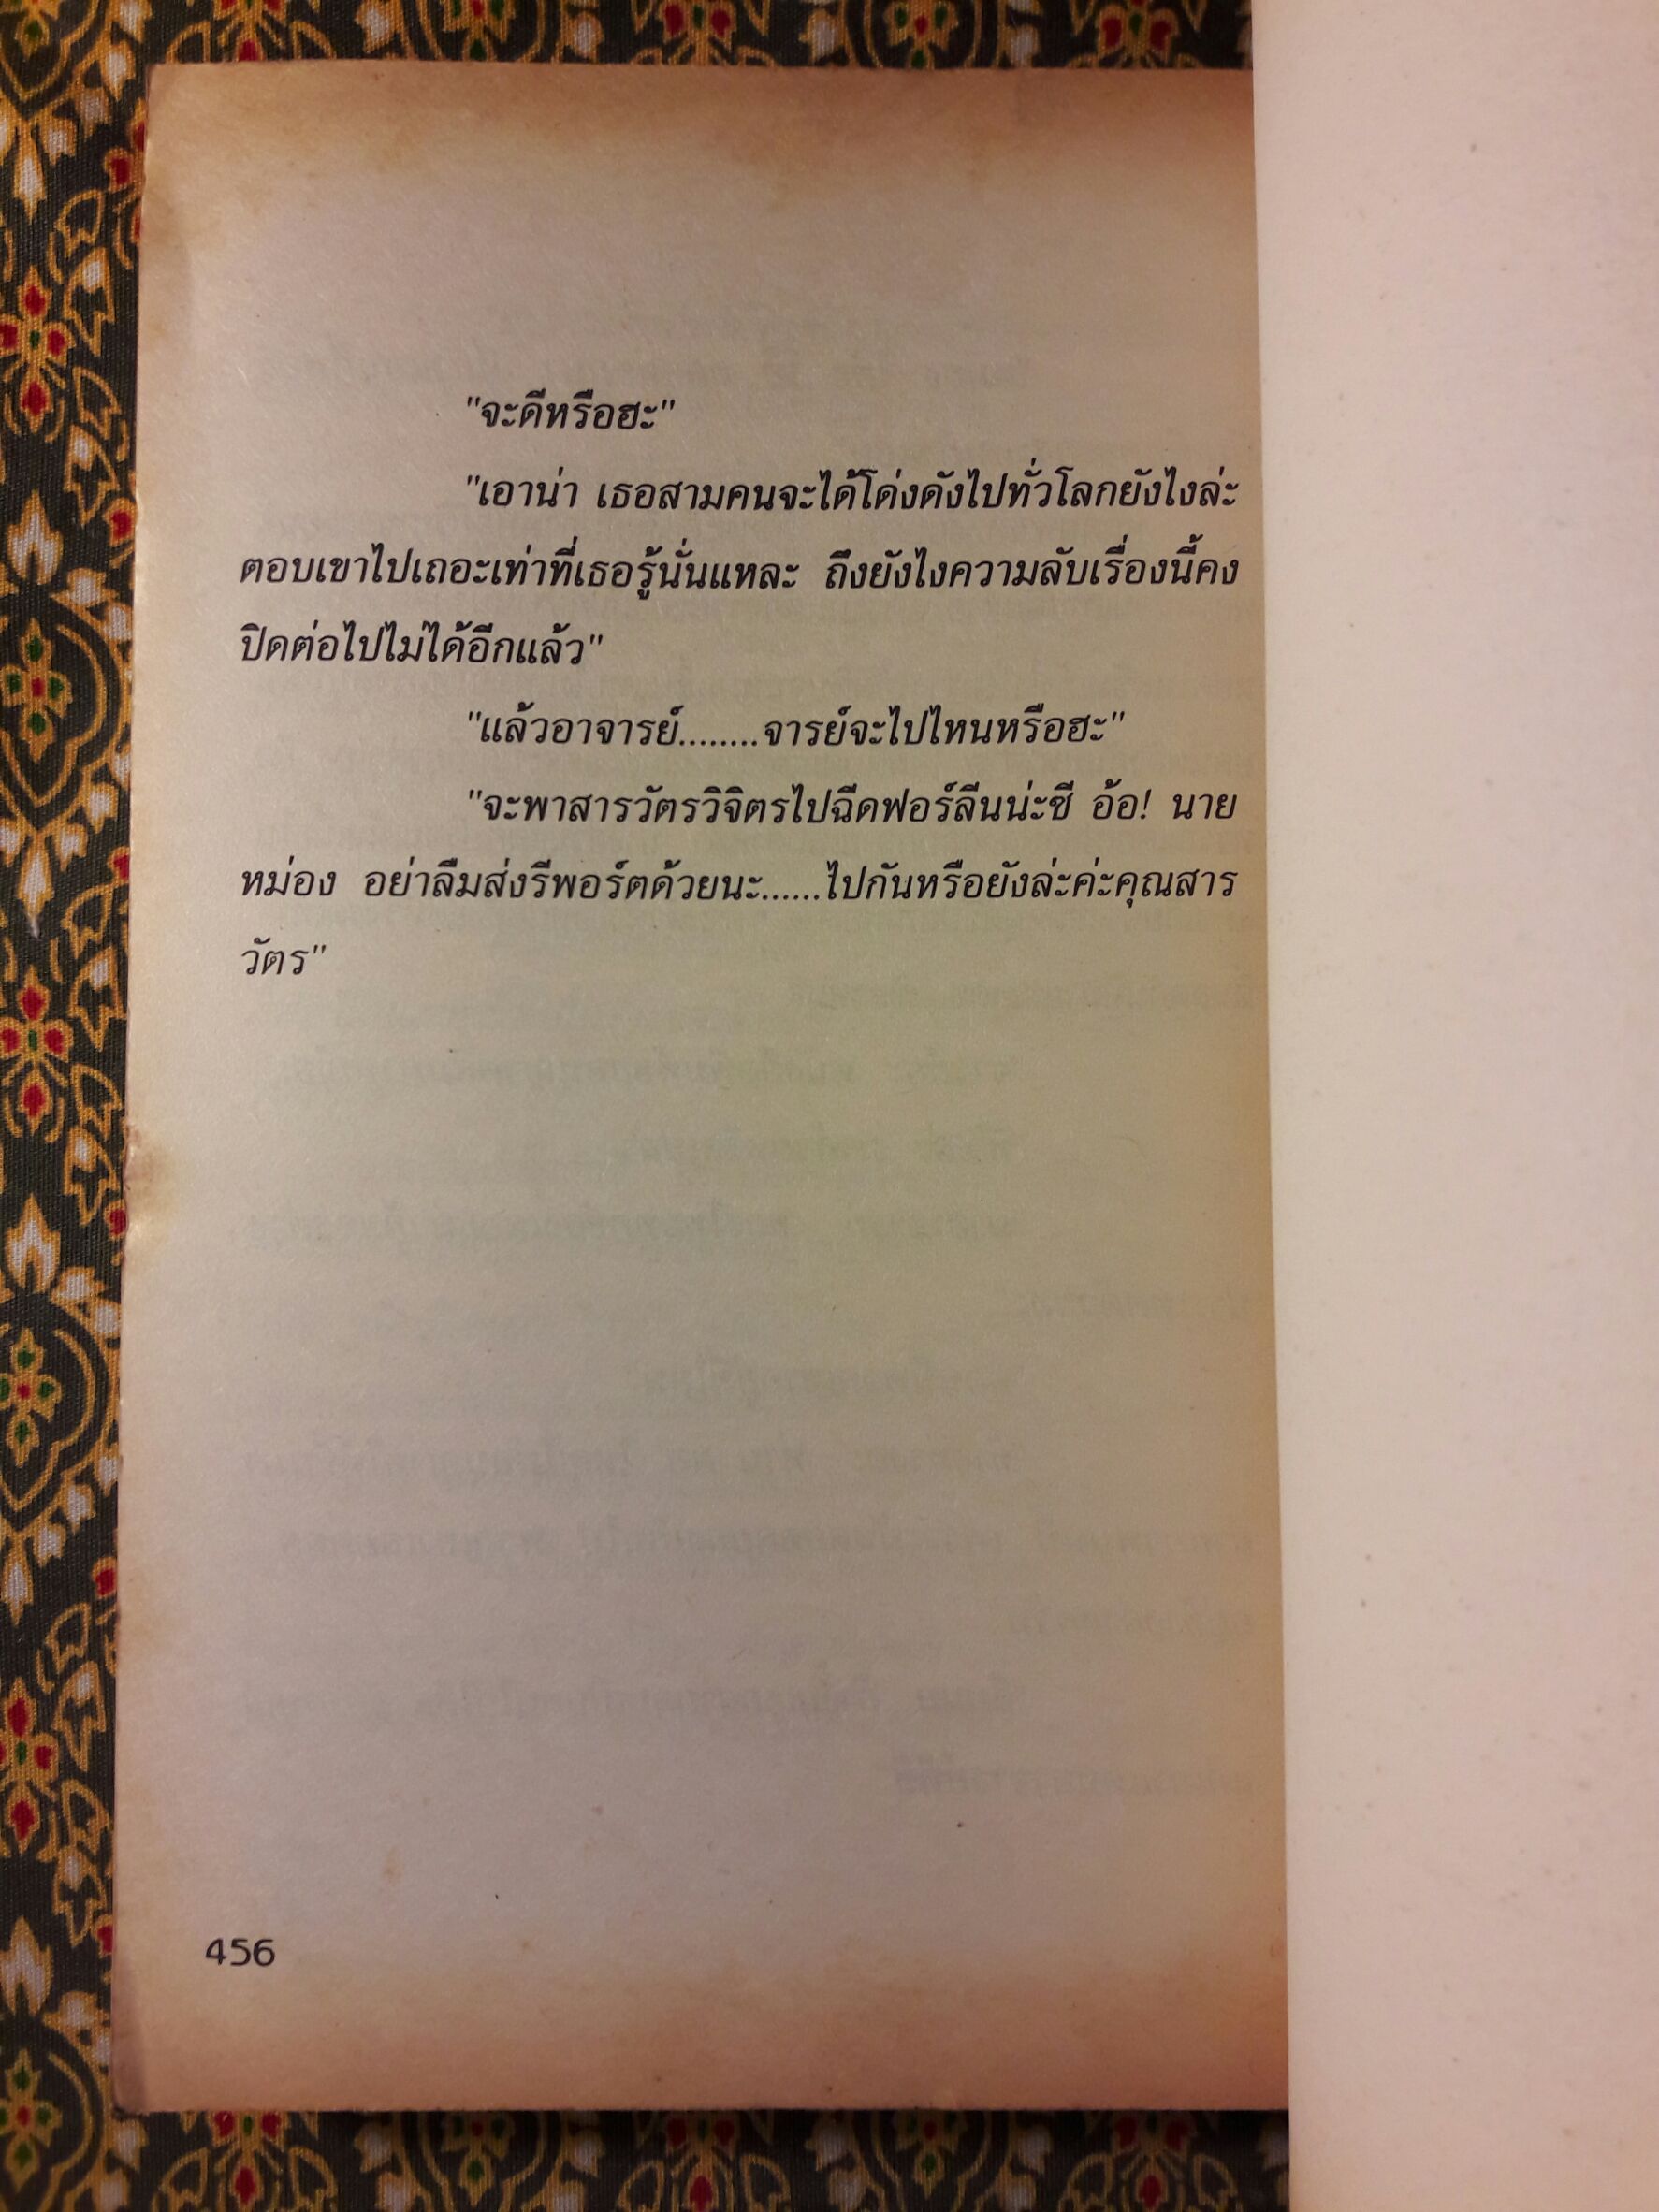 "จะดีหรือฮะ"
"เอาน่า เธอสามคนจะได้โด่งดังไปทั่วโลกยังไงล่ะ
ตอบเขาไปเถอะเท่าที่เธอรู้นั่นแหละ ถึงยังไงความลับเรื่องนี้คง
ปิดต่อไปไม่ได้อีกแล้ว"
"แล้วอาจารย์........จารย์จะไปไหนหรือฮะ"
"จะพาสารวัตรวิจิตรไปฉีดฟอร์ลีนน่ะซี อ้อ! นาย
หม่อง อย่าลืมส่งรีพอร์ตด้วยนะ......ไปกันหรือยังล่ะค่ะคุณสาร
วัตร"
456